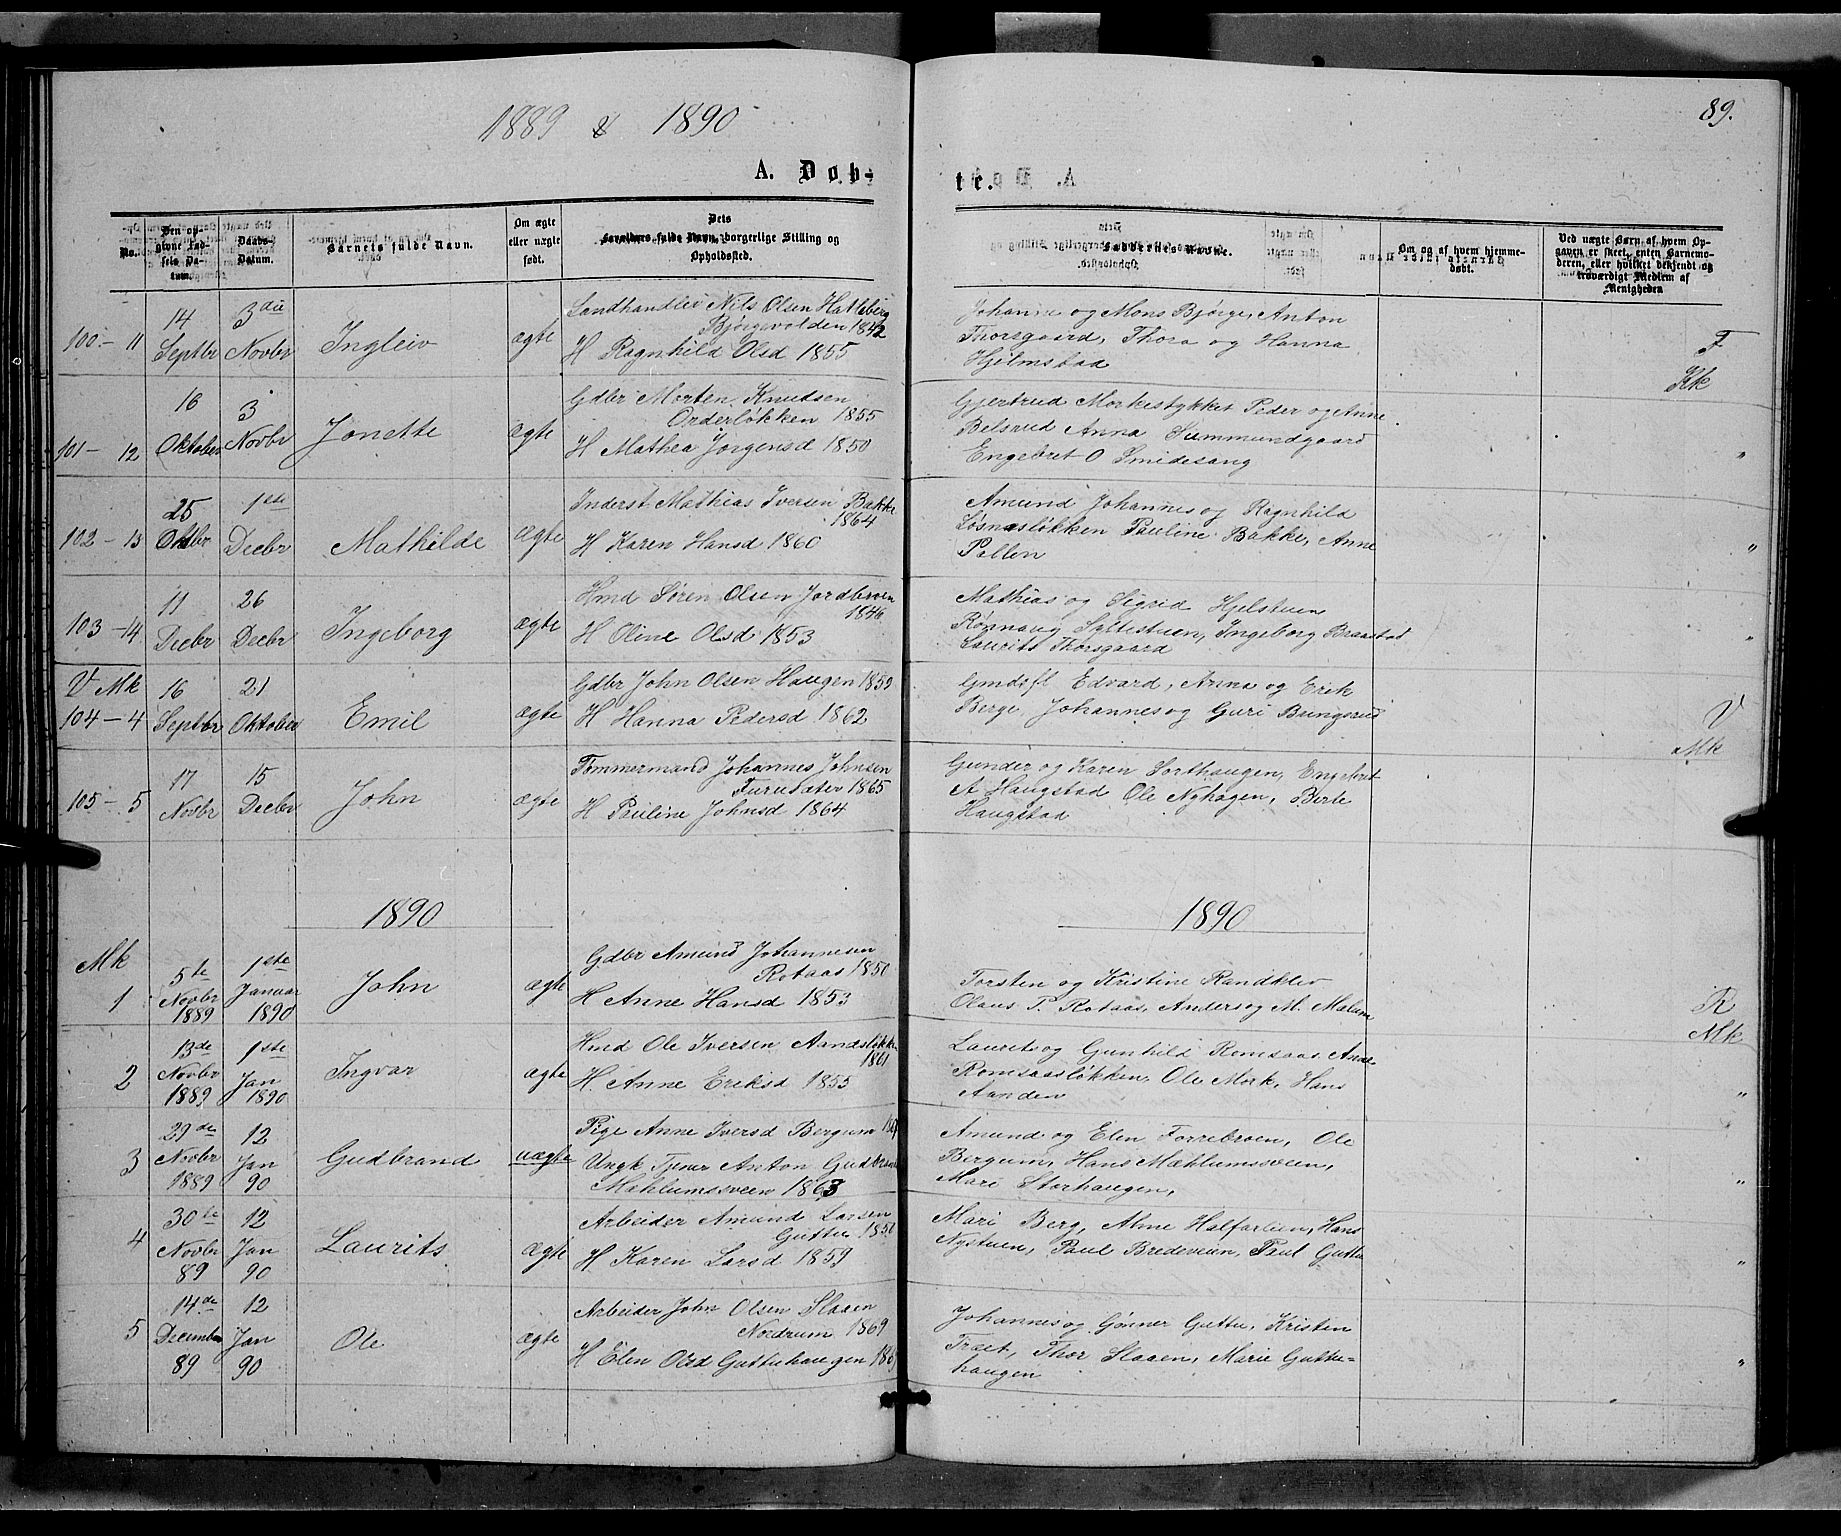 1889 & 1890
89.
A. Døb-
te.
No.
Den op-
givne Fød-
sels Da-
tum.
Daabs-
Datum.
Barnets fulde Navn.
Om ægte
eller uægte
født.
Dets
Forældres fulde Navn, borgerlige Stilling og
Opholdssted.
Faddernes Navne.
Om og af hvem hjemme-
døbt.
Ved uægte Børn af hvem Op-
gaven er skeet, enten Barnemo-
deren, eller hvilket bekjendt og
troværdigt Medlem af
Menigheden
100 - 11
14
Septbr
3die
Novbr
Ingleiv
ægte
Landhandler Nils Olsen Hatleberg
Bjørgevolden 1842
H Ragnhild Olsd 1855
Johanne og Mons Bjørge, Anton
Thorsgaard, Thora og Hanna
Hjelmstad
F
Kk
101 - 12
16
Oktober
3
Novbr
Jonette
ægte
Gdbr Morten Knudsen
Orderløkken 1855
H Mathea Jørgensd 1850
Gjertrud Morkestykket Peder og Anne
Belsrud Anna Summundgaard
Engebret O Smidesang
"
102 - 13
25
Oktbr
1ste
Decbr
Mathilde
ægte
Inderst Mathias Iversen Bakke
1864
H Karen Hansd 1860
Amund Johannes og Ragnhild
Løsnesløkken Pauline Bakke, Anne
Pellen
"
103 - 14
11
Decbr
26
Decbr
Ingeborg
ægte
Hmd Søren Olsen Jordbroen
1846
H Oline Olsd 1853
Mathias og Sigrid Hjelstuen
Rønnaug Syltestuen, Ingeborg Braastad
Laurits Thorsgaard
"
V Mk
104 - 4
16
Septbr
21
Oktober
Emil
ægte
Gdbr John Olsen Haugen 1859
H Hanna Pedersd 1862
Gmdsfl Edvard, Anna og Erik
Berge, Johannes og Guri Bungsrud
V
Mk
105 - 5
17
Novbr
15
Decbr
John
ægte
Tømmermand Johannes Johnsen
Furusæter 1865
H Pauline Johnsd 1864
Gunder og Karen Sorthaugen, Engebret
A Haugstad Ole Nyhagen, Berte
Haugstad
1890
1890
Mk
1
5te
Novbr
1889
1ste
Januar
1890
John
ægte
Gdbr Amund Johannesen
Rotaas 1850
H Anne Hansd 1853
Torsten og Kristine Randklev
Olaus P. Rotaas, Anders og M. Melum
R
Mk
2
13de
Novbr
1889
1ste
Jan
1890
Ingvar
ægte
Hmd Ole Iversen Aandsløkken
1861
H. Anne Eriksd 1855
Laurits og Gunhild Romsaas Anne
Romsaasløkken, Ole Mork, Hans
Aanden
"
3
29de
Novbr
1889
12
Jan
90
Gudbrand
uægte
Pige Anne Iversd Bergum
Ungk Tjener Anton Gudbrands
Mæhlumsveen 1863
Amund og Elen Forrebroen, Ole
Bergum, Hans Mæhlumsveen,
Mari Storhaugen,
"
4
30te
Novbr
89
12
Jan
90
Laurits
ægte
Arbeider Amund Larsen
Guttu
H Karen Larsd 1859
Mari Berg, Anne Halfarlien, Hans
Nystuen, Paul Bredeveien, Paul Guttu
"
5
14de
December
89
12
Jan
90
Ole
ægte
Arbeider John Olsen Slaaen
Nordrum 1869
H Elen Olsd Guttuhaugen
Johannes og Gønner Guttu, Kristen
Træet, Thor Slaaen, Marie Guttu-
haugen
"